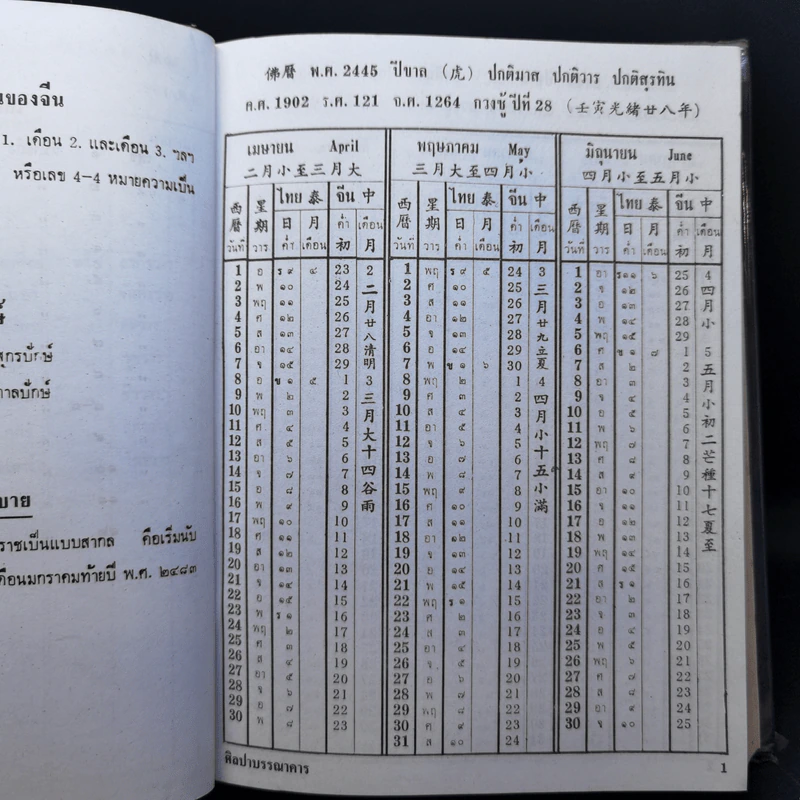 นของจีน
1. เดือน 2. และเดือน 3. ฯลฯ
หรือเลข 4-4 หมายความเป็น
ษ์
สุกรบักษ์
าลบักษ์
บาย
ราชเป็นแบบสากล คือเริ่มนับ
ดือนมกราคมท้ายปี พ.ศ. ๒๔๘๓
佛曆 พ.ศ. 2445 ปีขาล (虎) ปกติมาส ปกติวาร ปกติสุรทิน
ค.ศ. 1902 ร.ศ. 121 จ.ศ. 1264 กวงซู้ ปีที่ 28 (壬寅光緒廿八年)
เมษายน April
二月小至三月大
西曆 星期 ไทย 泰 จีน 中
日 月 ค่ำ เดือน
วันที่ วาร ค่ำ เดือน 初 月
1 อ ร ๙ ๔ 23 2
2 พ ๑๐ 24
3 พฤ ๑๑ 25
4 ศ ๑๒ 26
5 ส ๑๓ 27
6 อา ๑๔ 28
7 จ ๑๕ 29
8 อ ข ๑ ๕ 1 3
9 พ ๒ 2
10 พฤ ๓ 3
11 ศ ๔ 4
12 ส ๕ 5
13 อา ๖ 6
14 จ ๗ 7
15 อ ๘ 8
16 พ ๙ 9
17 พฤ ๑๐ 10
18 ศ ๑๑ 11
19 ส ๑๒ 12
20 อา ๑๓ 13
21 จ ๑๔ 14
22 อ ๑๕ 15
23 พ ร ๑ 16
24 พฤ ๒ 17
25 ศ ๓ 18
26 ส ๔ 19
27 อา ๕ 20
28 จ ๖ 21
29 อ ๗ 22
30 พ ๘ 23
二月廿八清明
三月大十四谷雨
พฤษภาคม May
三月大至四月小
西曆 星期 ไทย 泰 จีน 中
日 月 ค่ำ เดือน
วันที่ วาร ค่ำ เดือน 初 月
1 พฤ ร ๙ ๕ 24 3
2 ศ ๑๐ 25
3 ส ๑๑ 26
4 อา ๑๒ 27
5 จ ๑๓ 28
6 อ ๑๔ 29
7 พ ข ๑ ๖ 30
8 พฤ ๒ 1 4
9 ศ ๓ 2
10 ส ๔ 3
11 อา ๕ 4
12 จ ๖ 5
13 อ ๗ 6
14 พ ๘ 7
15 พฤ ๙ 8
16 ศ ๑๐ 9
17 ส ๑๑ 10
18 อา ๑๒ 11
19 จ ๑๓ 12
20 อ ๑๔ 13
21 พ ๑๕ 14
22 พฤ ร ๑ 15
23 ศ ๒ 16
24 ส ๓ 17
25 อา ๔ 18
26 จ ๕ 19
27 อ ๖ 20
28 พ ๗ 21
29 พฤ ๘ 22
30 ศ ๙ 23
31 ส ๑๐ 24
三月廿九立夏
四月小十五小滿
มิถุนายน June
四月小至五月小
西曆 星期 ไทย 泰 จีน 中
日 月 ค่ำ เดือน
วันที่ วาร ค่ำ เดือน 初 月
1 อา ร๑๑ ๖ 25 4
2 จ ๑๒ 26
3 อ ๑๓ 27
4 พ ๑๔ 28
5 พฤ ๑๕ 29
6 ศ ข ๑ ๗ 1 5
7 ส ๒ 2
8 อา ๓ 3
9 จ ๔ 4
10 อ ๕ 5
11 พ ๖ 6
12 พฤ ๗ 7
13 ศ ๘ 8
14 ส ๙ 9
15 อา ๑๐ 10
16 จ ๑๑ 11
17 อ ๑๒ 12
18 พ ๑๓ 13
19 พฤ ๑๔ 14
20 ศ ๑๕ 15
21 ส ร ๑ 16
22 อา ๒ 17
23 จ ๓ 18
24 อ ๔ 19
25 พ ๕ 20
26 พฤ ๖ 21
27 ศ ๗ 22
28 ส ๘ 23
29 อา ๙ 24
30 จ ๑๐ 25
四月小
五月小初二芒種十七夏至
ศิลปาบรรณาคาร 1